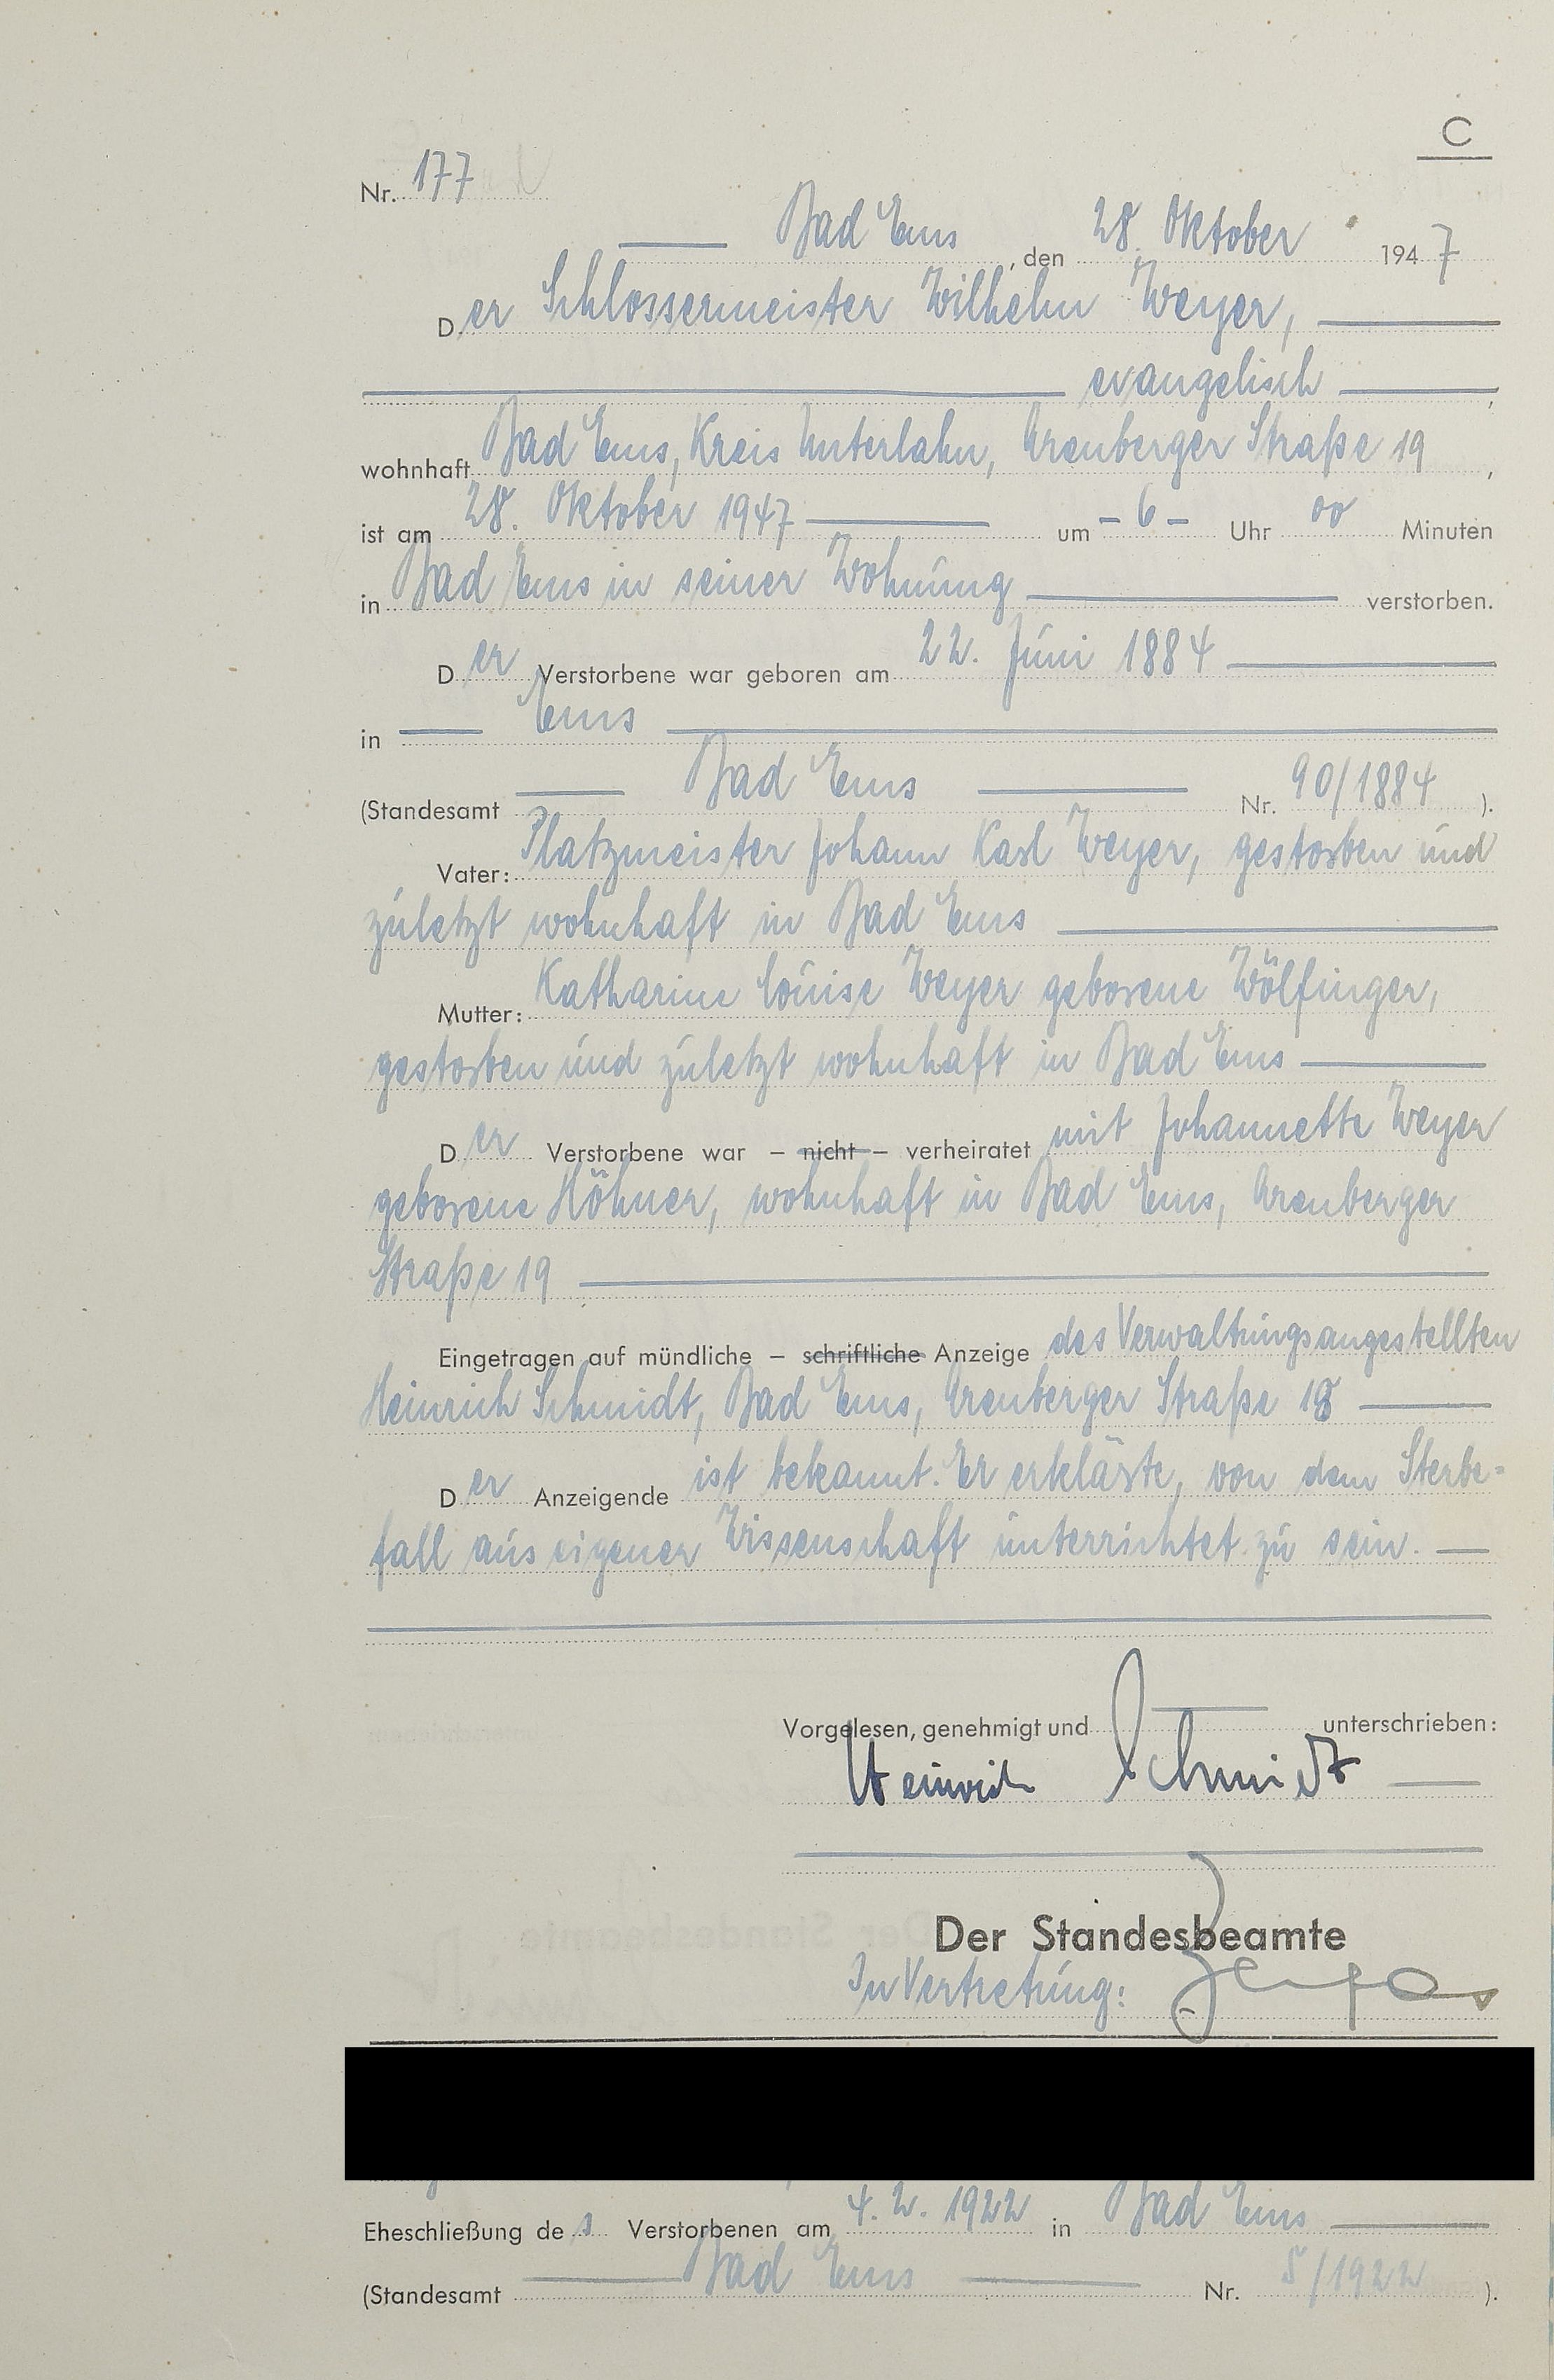 C
Nr. 177
Bad Ems, den 28. Oktober 1947
Der Schlossermeister Wilhelm Weyer,
evangelisch,
wohnhaft Bad Ems, Kreis Unterlahn, Arenberger Straße 19,
ist am 28. Oktober 1947 um - 6 - Uhr 00 Minuten
in Bad Ems in seiner Wohnung verstorben.
Der Verstorbene war geboren am 22. Juni 1884
in Ems
(Standesamt Bad Ems Nr. 90/1884).
Vater: Platzmeister Johann Karl Weyer, gestorben und
zuletzt wohnhaft in Bad Ems
Mutter: Katharine Louise Weyer geborene Wölfinger,
gestorben und zuletzt wohnhaft in Bad Ems
Der Verstorbene war – nicht – verheiratet mit Johannette Weyer
geborene Höhner, wohnhaft in Bad Ems, Arenberger
Straße 19
Eingetragen auf mündliche – schriftliche Anzeige des Verwaltungsangestellten
Heinrich Schmidt, Bad Ems, Arenberger Straße
Der Anzeigende ist bekannt. Er erklärte, von dem Sterbe=
fall aus eigener Wissenschaft unterrichtet zu sein.
Vorgelesen, genehmigt und unterschrieben:
Heinrich Schmidt
Der Standesbeamte
In Vertretung:
Eheschließung des Verstorbenen am 4. 2. 1922 in Bad Ems
(Standesamt Bad Ems Nr. 5/1922).